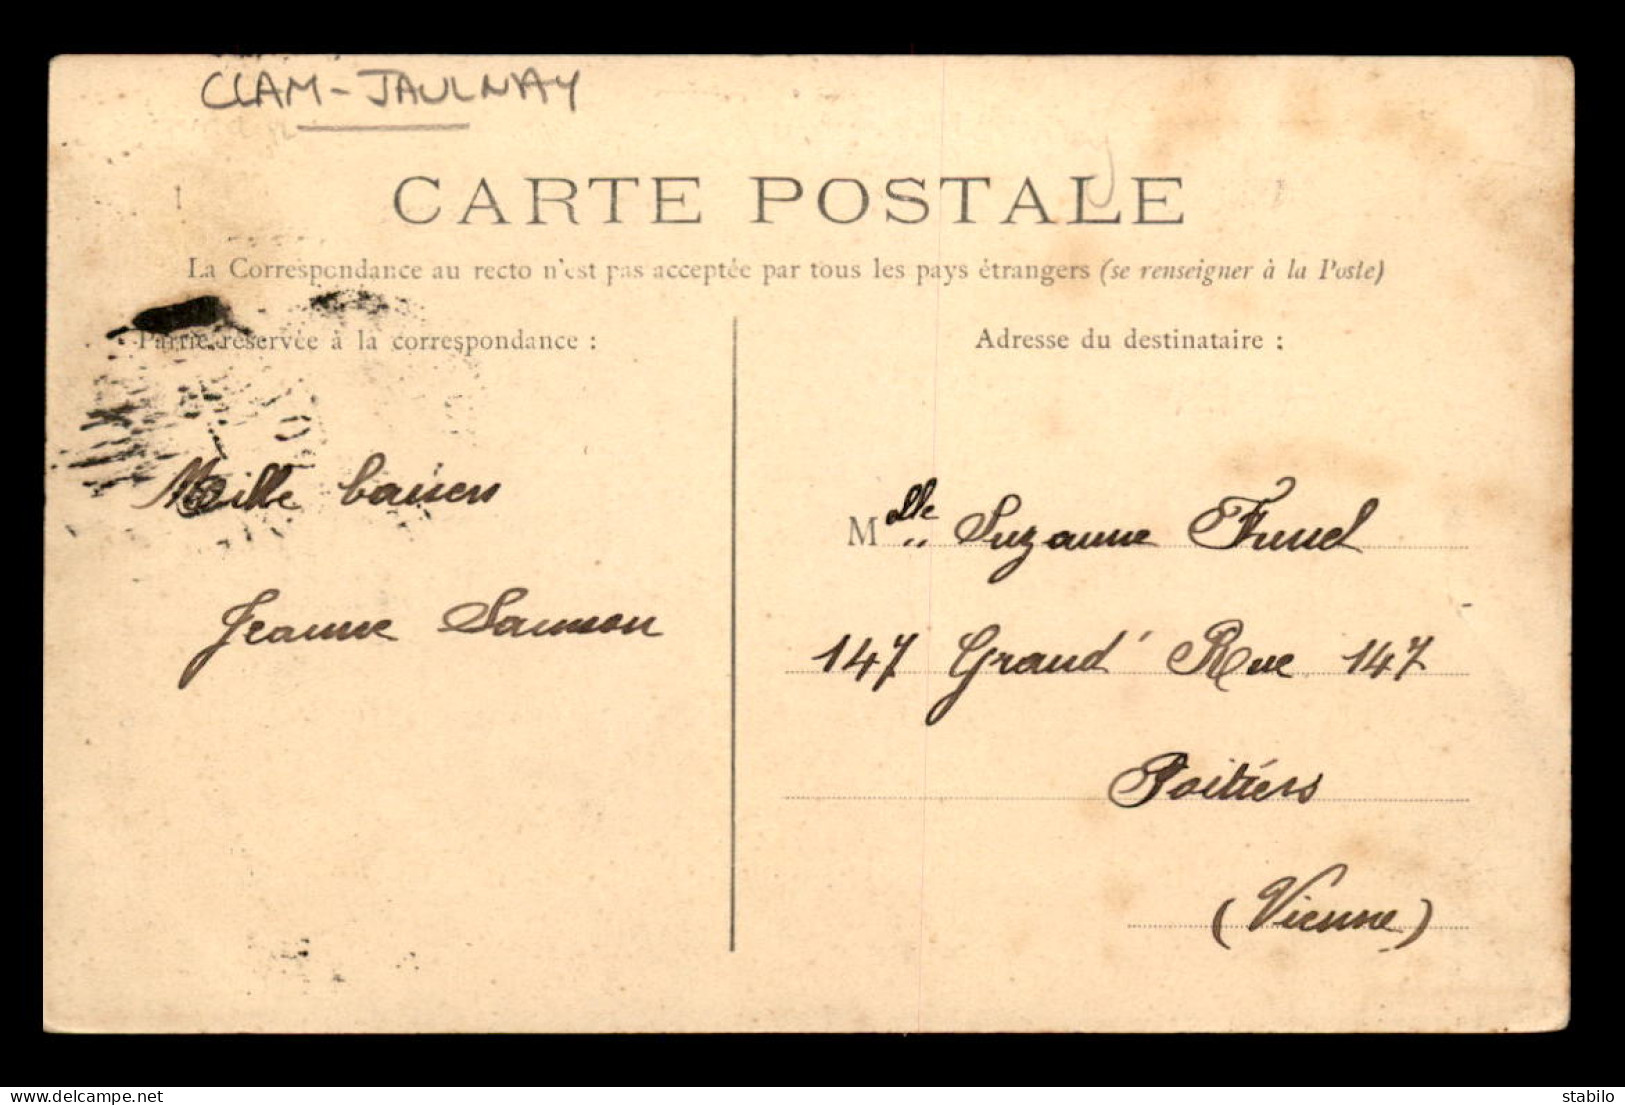 CLAM-JAULNAY
CARTE POSTALE
La Correspondance au recto n'est pas acceptée par tous les pays étrangers (se renseigner à la Poste)
Partie réservée à la correspondance :
Adresse du destinataire :
Mille baisers
Jeanne
Mlle Suzanne
147 Grand' Rue 147
Poitiers
(Vienne)
www.delcampe.net
stabilo